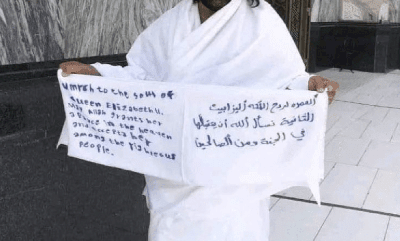 Umrah to the soul of
Queen Elizabeth II,
May Allah grants her
a place in the heaven
and accepts her
among the righteous
people.
العمره لروح الملكه أليزابيت
الثانية نسأل الله أن يتقبلها
في الجنة ومن الصالحين